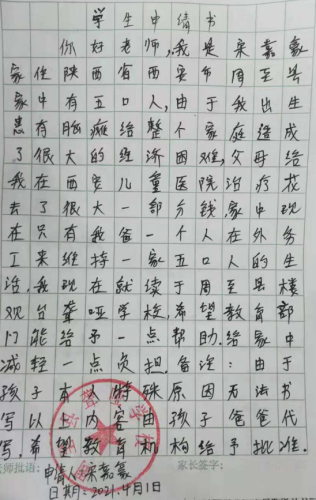 学生申请书
你好老师,我是宋嘉豪
家住陕西省西安市周至县
家中有五口人,由于我出生
患有脑瘫给整个家庭造成
了很大的经济困难,父母给
我在西安儿童医院治疗花
去了很大一部分钱,家中现
在只有我爸一个人在外务
工来维持一家五口人的生
活,我现在就续于周至县楼
观台聋哑学校,希望教育部
门能给予一点帮助.给家中
减轻一点负担.备注:由于
孩子本人特殊原因无法书
写以上内容由孩子爸爸代
写.希望教育机构给予批准.
老师批语: 家长签字:
申请人:宋嘉豪
日期:2021.4月1日